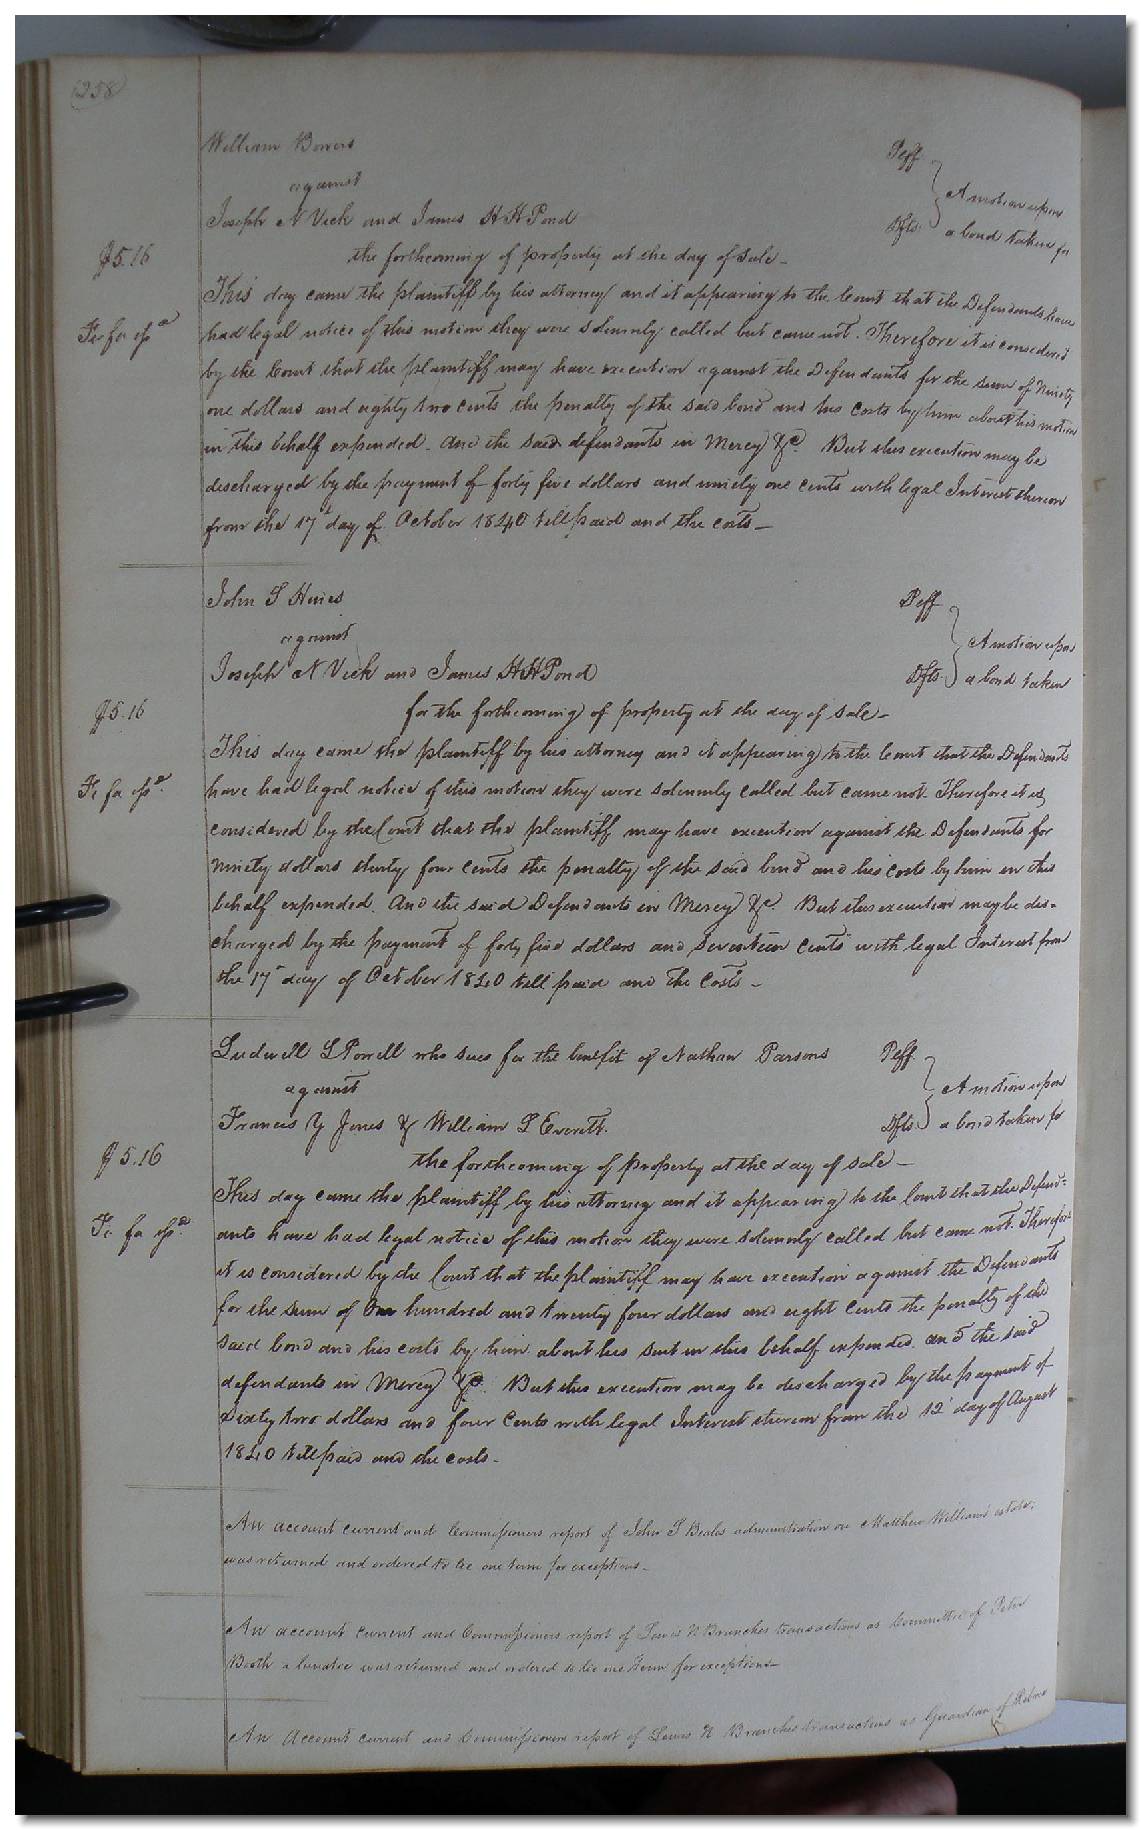 258
William Bowers Plff
against
A motion upon
Joseph N Vick and James H H Pond Dfts. a bond taken for
the forthcoming of property at the day of sale -
$5.16
This day came the plaintiff by his attorney and it appearing to the Court that the Defendants have
Fi fa isd
had legal notice of this motion they were solemnly called but came not. Therefore it is considered
by the Court that the plaintiff may have execution against the Defendants for the sum of Ninety
one dollars and eighty two cents the penalty of the said bond and his costs by him about his motion
in this behalf expended. And the said defendants in Mercy &c. But this execution may be
discharged by the payment of forty five dollars and ninety one cents with legal Interest thereon
from the 17th day of October 1840 till paid and the costs -
John S Hines Plff
against
A motion upon
Joseph N Vick and James H H Pond Dfts. a bond taken
$5.16
for the forthcoming of property at the day of sale -
This day came the plaintiff by his attorney and it appearing to the Court that the Defendants
Fi fa isd.
have had legal notice of this motion they were solemnly called but came not. Therefore it is
considered by the Court that the plaintiff may have execution against the Defendants for
Ninety dollars thirty four cents the penalty of the said bond and his costs by him in this
behalf expended. And the said Defendants in Mercy &c. But this execution may be dis-
charged by the payment of forty five dollars and seventeen cents with legal Interest from
the 17th day of October 1840 till paid and the costs -
Ludwell L Powell who sues for the benefit of Nathan Parsons Plff
against
A motion upon
Francis Y Jones & William S Everett. Dfts. a bond taken for
the forthcoming of property at the day of sale -
$5.16
This day came the plaintiff by his attorney and it appearing to the Court that the Defend-
Fi fa isd.
ants have had legal notice of this motion they were solemnly called but came not. Therefore
it is considered by the Court that the plaintiff may have execution against the Defendants
for the sum of One hundred and twenty four dollars and eight cents the penalty of the
said bond and his costs by him about his suit in this behalf expended. and the said
defendants in Mercy &c. But this execution may be discharged by the payment of
Sixty two dollars and four cents with legal Interest thereon from the 12 day of August
1840 till paid and the costs -
An account current and Commissioners report of John S Beales administration on Matthew Williams estate,
was returned and ordered to lie one term for exceptions -
An account current and Commissioners report of Lewis N Branches transactions as Committee of Peter
Booth a lunatic was returned and ordered to lie one term for exceptions -
An Account current and Commissioners report of Lewis N Branches transactions as Guardian of